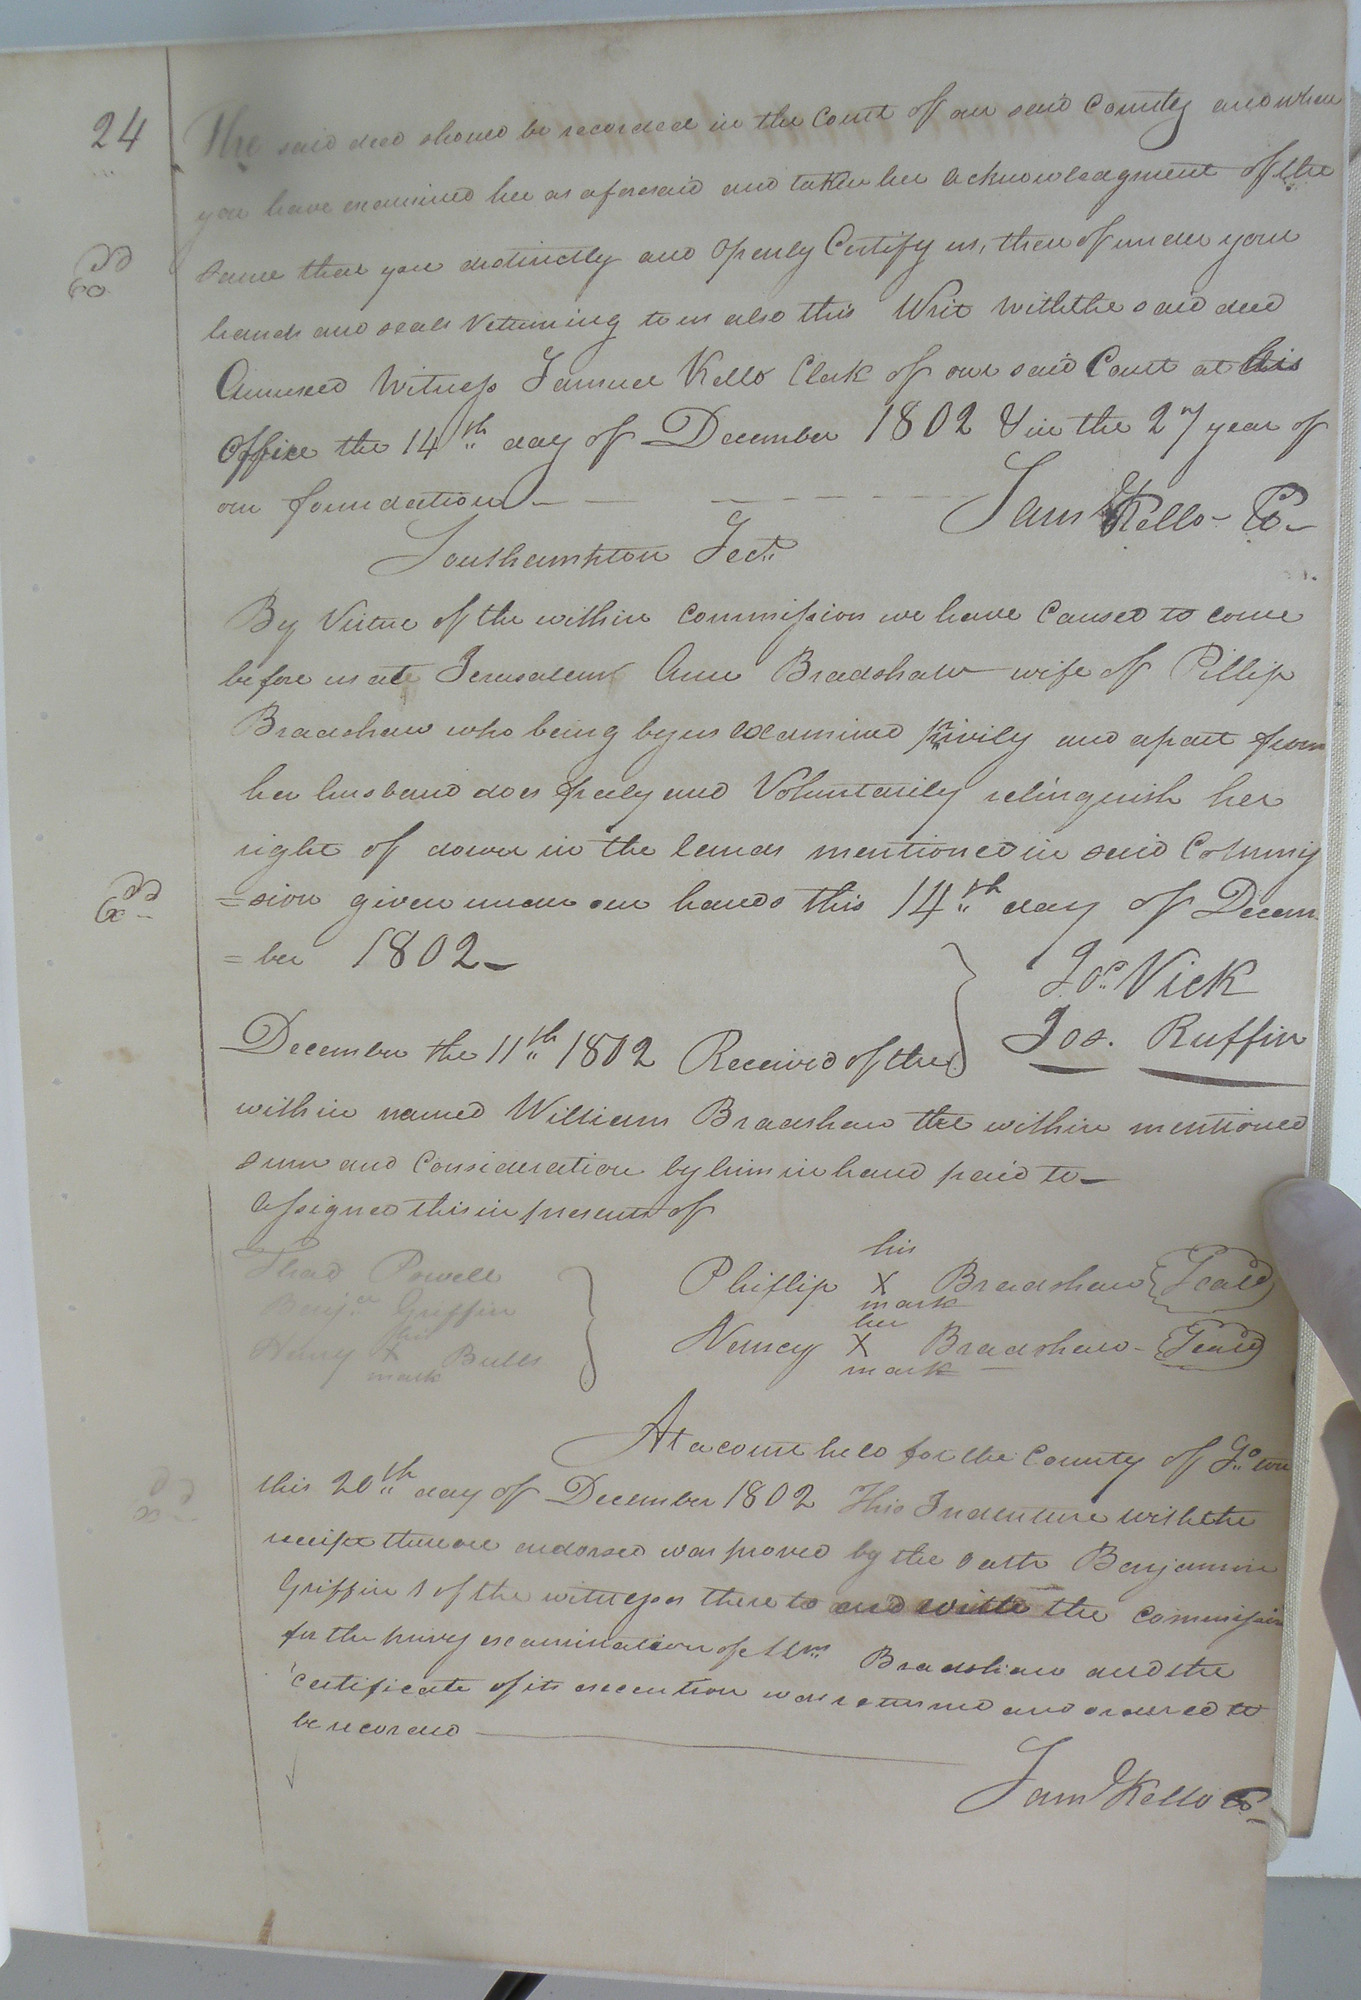 24
The said deed should be recorded in the Court of our said County and when
you have examined her as aforesaid and taken her acknowledgment of the
same that you distinctly and openly Certify us, there of under your
hands and seals Returning to us also this Writ with the said deed
Annexed Witness Samuel Kello Clerk of our said Court at his
office the 14th day of December 1802 & in the 27 year of
our foundation
Saml Kello
Southampton Sect.
By Virtue of the within Commission we have Caused to come
before us at Jerusalem Ann Bradshaw wife of Pillip
Bradshaw who being by us Examined privily and apart from
her husband does freely and Voluntarily relinquish her
right of dower in the lands mentioned in said Commis
=sion given under our hands this 14th day of Decem
=ber 1802
Jos. Vick
Jos. Ruffin
December the 11th 1802 Received of the
within named William Bradshaw the within mentioned
sum and Consideration by him in hand paid to
assigned this in presents of
Thad Powell
Benja Griffin
his
Henry X Bulls
mark
his
Phillip X Bradshaw Seal
mark
her
Nancy X Bradshaw - Seal
mark
At a court held for the County of
this 20th day of December 1802 This Indenture with the
receipt thereon endorsed was proved by the oath Benjamin
Griffin 1 of the witnesses there to and with the Commission
for the privy examination of Bradshaw and the
certificate of its execution was returned and ordered to
be recorded
Saml Kello